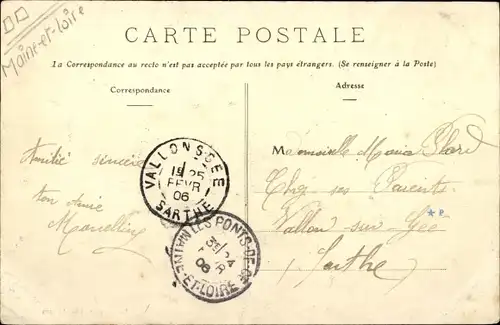 Maine-et-Loire
CARTE POSTALE
La Correspondance au recto n'est pas acceptée par tous les pays étrangers. (Se renseigner à la Poste)
Correspondance
Adresse
Amitié sincère
ton amie
Marcelline
VALLON S-GEE
1E 25
FEVR
06
SARTHE
LES PONTS-DE-CE
3E 24
06
MAINE-ET-LOIRE
Mademoiselle Maria
Chez ses Parents
Vallon-sur-Gée
Sarthe